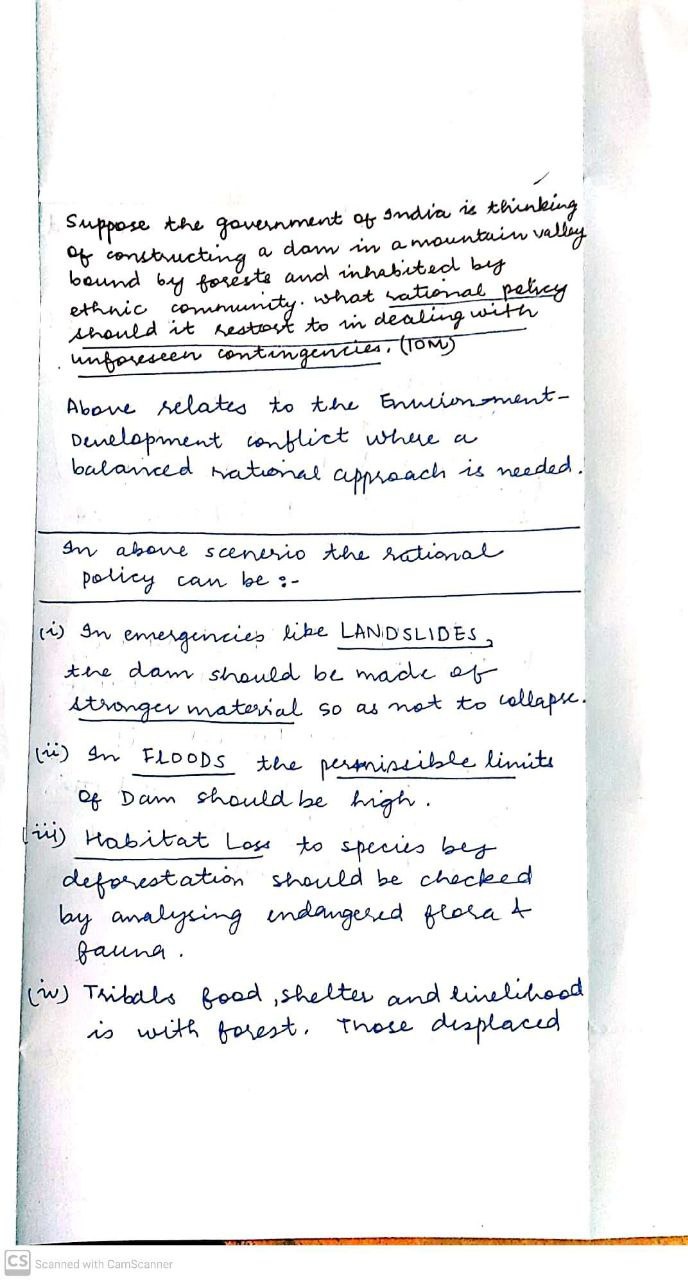 Suppose the government of India is thinking
of constructing a dam in a mountain valley
bound by forests and inhabited by
ethnic community. what rational policy
should it restort to in dealing with
unforeseen contingencies. (10M)
Above relates to the Envuionment-
Development conflict where a
balanced rational approach is needed.
In above scenerio the rational
policy can be :-
(i) In emergencies like LANDSLIDES,
the dam should be made of
stronger material so as not to collapse.
(ii) In FLOODS the permissible limits
of Dam should be high.
(iii) Habitat Loss to species by
deforestation should be checked
by analysing endangered flora &
fauna.
(iv) Tribals food, shelter and livelihood
is with forest. Those displaced
CS Scanned with CamScanner